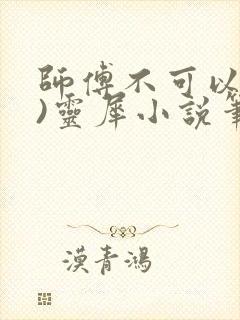 師傅不可以
)靈犀小說筆
漢青鴻